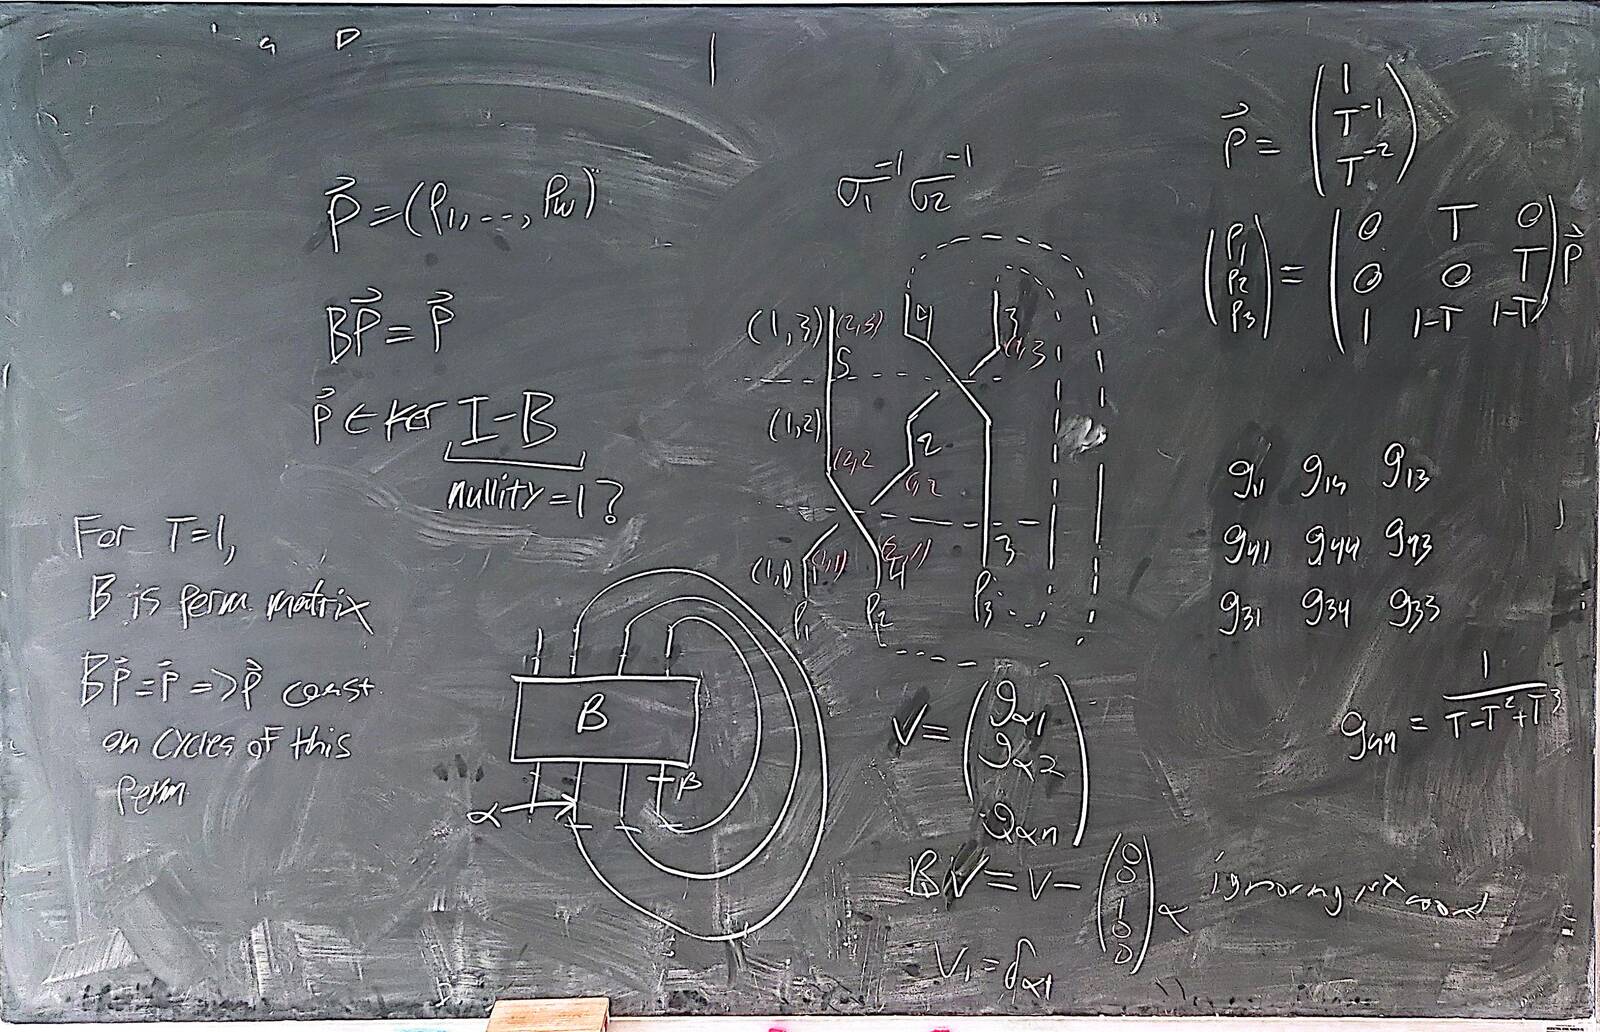 p⃗ = (p₁, ..., p_w)
Bp⃗ = p⃗
p⃗ ∈ ker I-B
nullity = 1?
For T=1,
B is perm. matrix
Bp⃗ = p⃗ => p⃗ const.
on cycles of this
perm
B
α
β
σ₁⁻¹ σ₂⁻¹
(1,3) (2,3) 4 3
5 (1,3
(1,2) 2
(2,2 (1,2
(1,1) 4 3
p₁ p₂ p₃
V = (g_α1
g_α2
g_αn)
BV = V - (0 0 1 0 0) α ignoring 1st coord
V₁ = δ_α1
p⃗ = (1
T⁻¹
T⁻²)
(p₁ p₂ p₃) = (0 T 0
0 0 T
1 1-T 1-T) p⃗
g₁₁ g₁₄ g₁₃
g₄₁ g₄₄ g₄₃
g₃₁ g₃₄ g₃₃
g₄₄ = 1 / (T-T²+T³)